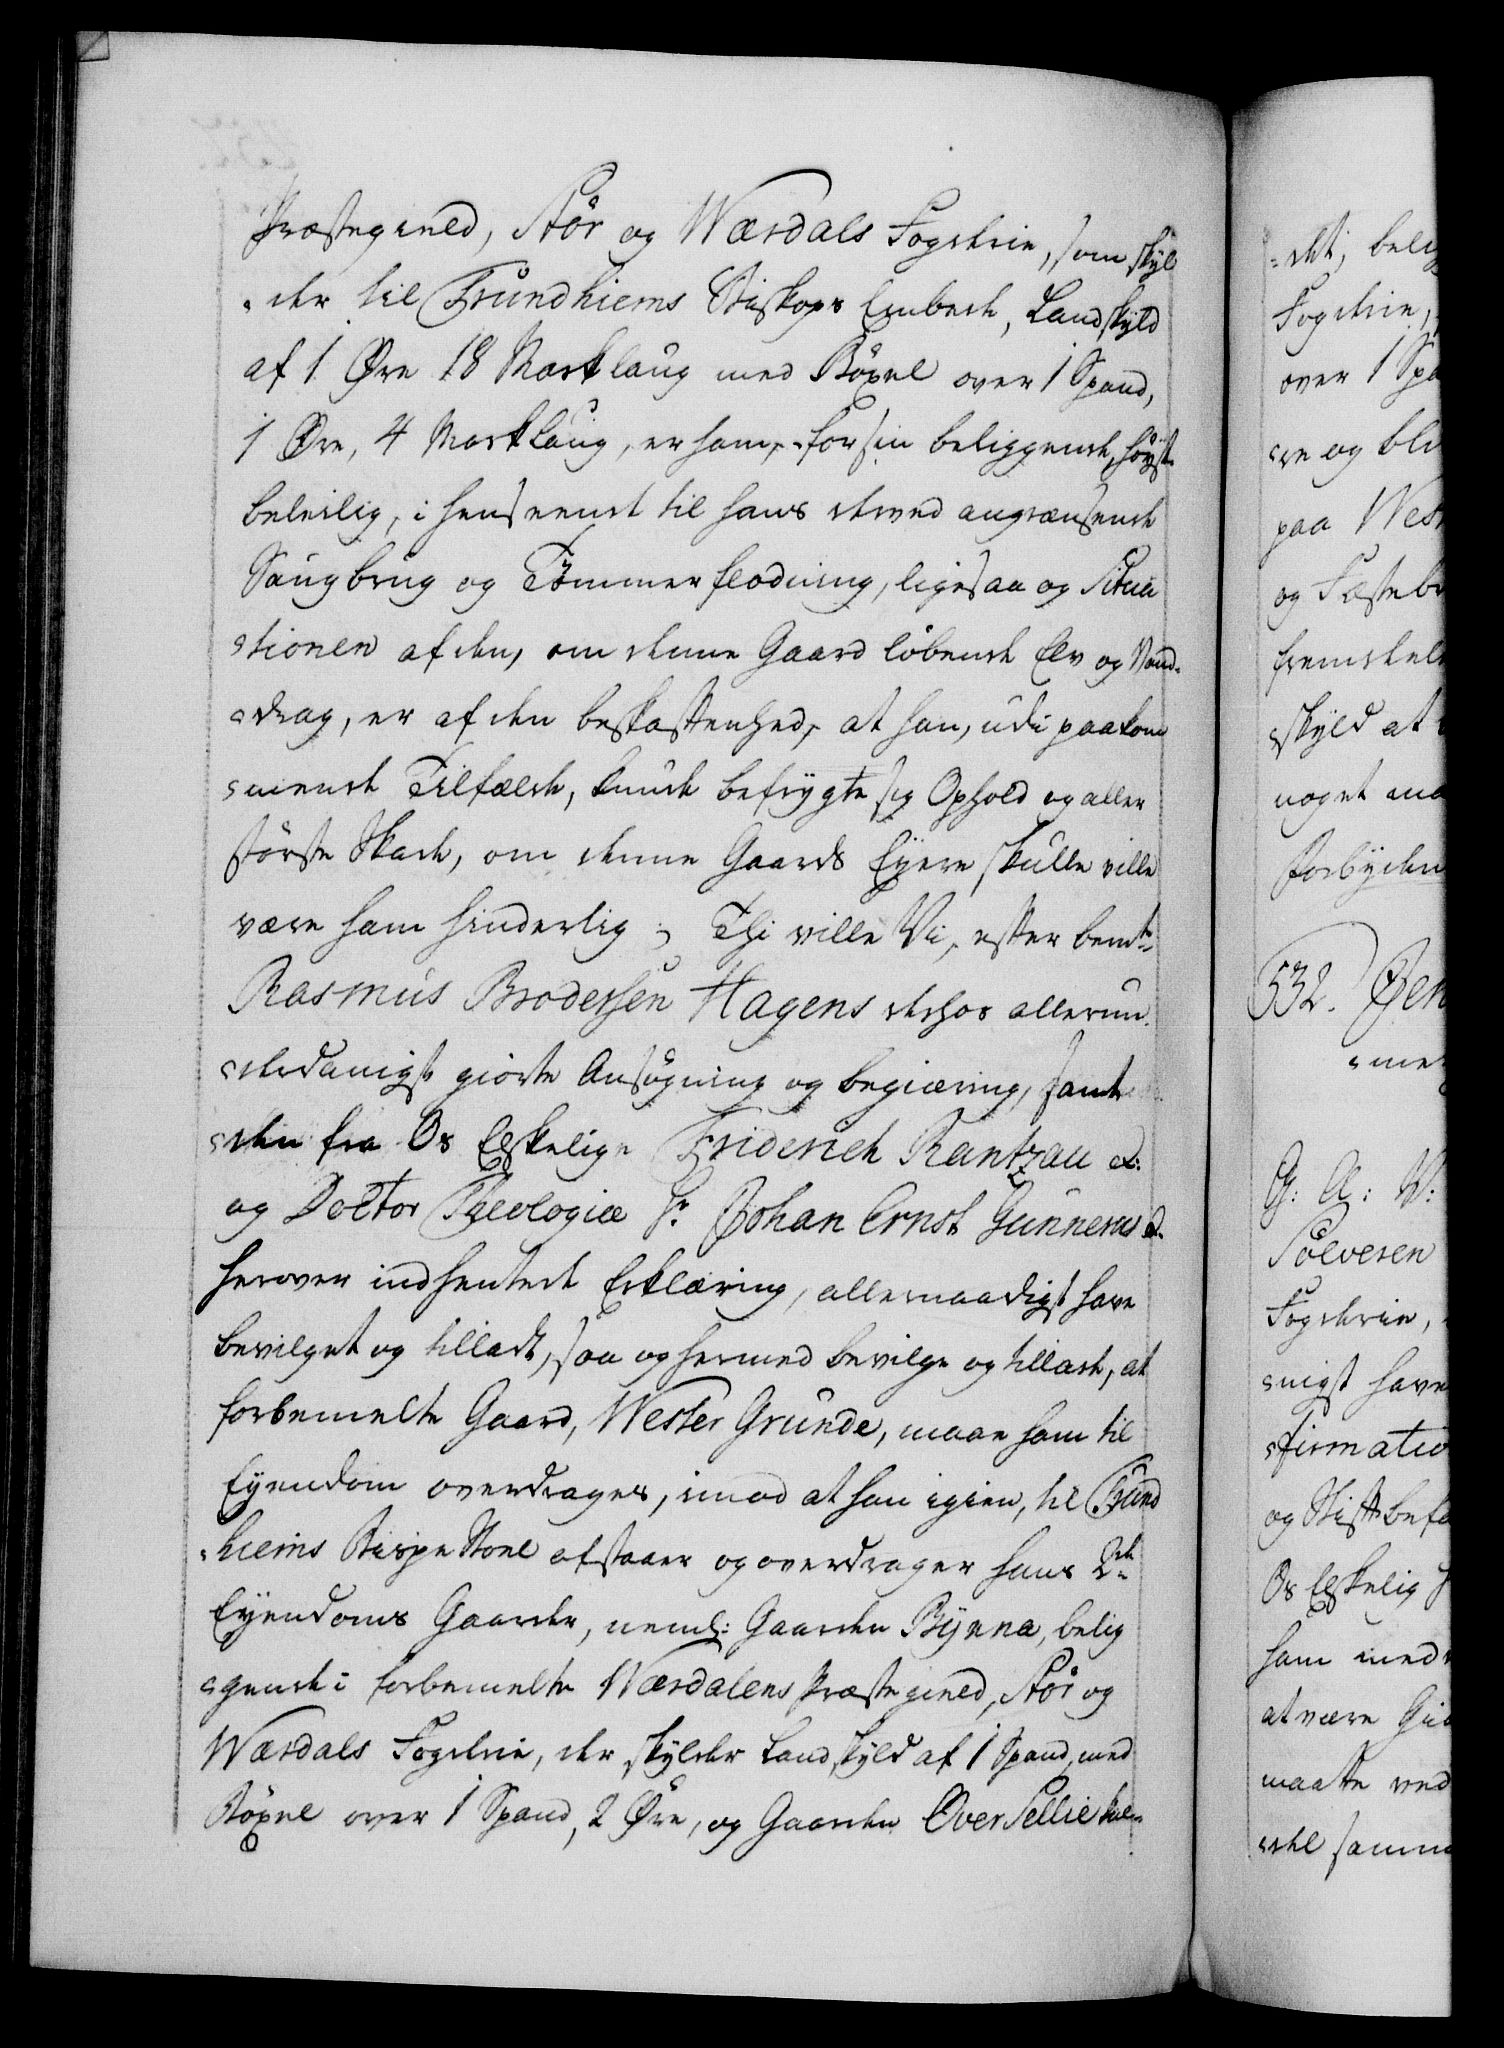 Præstegield, Stör og Wærdals Fogderie, som skyl
-der til Trundhiems Biskops Embede, Landskyld
af 1 Øre 18 Marklaug med Böxel over 1 Spand,
1 Øre, 4 Marklaug, er ham, for sin beliggende, höyst
beleilig, i henseende til hans derved angrændsende
Saugbrug og Tömmerflodning, ligesaa og Situa
-tionen af den, om denne Gaard löbende Elv og Vand-
-drag, er af den beskaffenhed, at han, udi paakom
-mende Tilfælde, kunde befrygte sig Ophold og aller
störste Skade, om denne Gaards Eyere skulle ville
være ham hinderlig; Thi ville Vi, efter bemte
Rasmus Brodersen Hagens derhos allerun-
-derdanigst giorte Ansögning og begiæring, samt
den fra Os Elskelige Friderich Rantzau &:
og Doctor Theologiæ Hr. Johan Ernst Gunnerus &.
herover indhentede Erklæring, allernaadigst have
bevilget og tilladt, saa og hermed bevilge og tillade, at
forbemelte Gaard, Wester Grunde, maae ham til
Eyendom overdrages, imod at han igien, til Trund
-hiems Bispe Stoel afstaaer og overdrager hans 2de
Eyendoms Gaarder, neml: Gaarden Bÿnna, belig
-gende i forbemelte Wærdalens Præstegield, Stör og
Wærdals Fogderie, der skylder Landskyld af 1 Spand, med
Böxel over 1 Spand, 2 Øre, og Gaarden Over Sellie
-det, belig
Fogderie,
over 1 Spa
-re og bli
paa West
og Fæstebr
fremdeles
-skyld at
noget ma
Forbyden
532. Jen
G: A: V:
Sölvesen
Fogderie,
-nigst have
-firmatio
og Stiftbefa
Os Elskelig H
ham med
at være Gi
maatte ved
-del samme